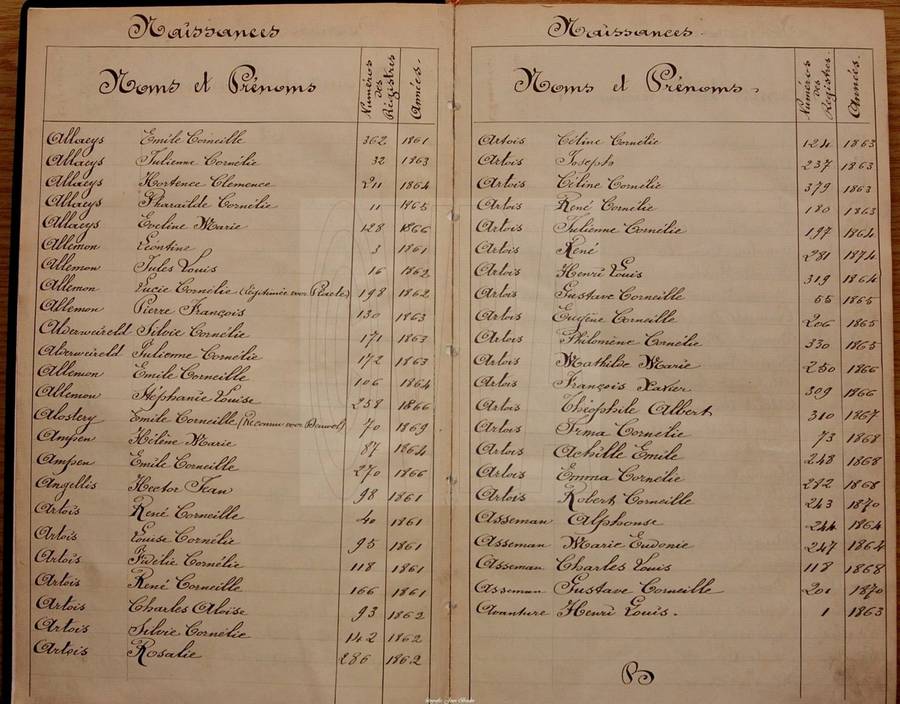 Naissances
Noms et Prénoms Numéros des Régistres Années.
Allaeys Emile Corneille 362 1861
Allaeys Julienne Cornélie 32 1863
Allaeys Hortence Clemence 211 1864
Allaeys Pharaïlde Cornélie 11 1865
Allaeys Eveline Marie 128 1866
Allemon Léontine 3 1861
Allemon Jules Louis 16 1862
Allemon Lucie Cornélie (légitimée voor Plaete) 198 1862
Allemon Pierre François 130 1863
Alverweireld Silvie Cornélie 171 1863
Alverweireld Julienne Cornélie 172 1863
Allemon Emile Corneille 106 1864
Allemon Stéphanie Louise 258 1866
Alostery Emile Corneille (Reconnu voor Bauwel) 70 1869
Ampen Hélène Marie 87 1864
Ampen Emile Corneille 270 1866
Angellis Hector Jean 98 1861
Artois René Corneille 40 1861
Artois Louise Cornélie 95 1861
Artois Fidélie Cornélie 118 1861
Artois René Corneille 166 1861
Artois Charles Aloïse 93 1862
Artois Silvie Cornélie 142 1862
Artois Rosalie 286 1862
Naissances
Noms et Prénoms. Numéros des Régistres. Années.
Artois Céline Cornélie 124 1863
Artois Joseph 237 1863
Artois Céline Cornélie 379 1863
Artois René Cornélie 180 1863
Artois Julienne Cornélie 197 1864
Artois René 281 1874
Artois Henri Louis 319 1864
Artois Gustave Corneille 65 1865
Artois Eugène Corneille 206 1865
Artois Philomène Cornélie 330 1865
Artois Mathilde Marie 250 1866
Artois François Xavier 309 1866
Artois Théophile Albert 310 1867
Artois Irma Cornélie 73 1868
Artois Achille Emile 248 1868
Artois Emma Cornélie 282 1868
Artois Robert Corneille 243 1870
Asseman Alphonse 244 1864
Asseman Marie Eudonie 247 1864
Asseman Charles Louis 118 1868
Asseman Gustave Corneille 201 1870
Avanture Henri Louis. 1 1863
B